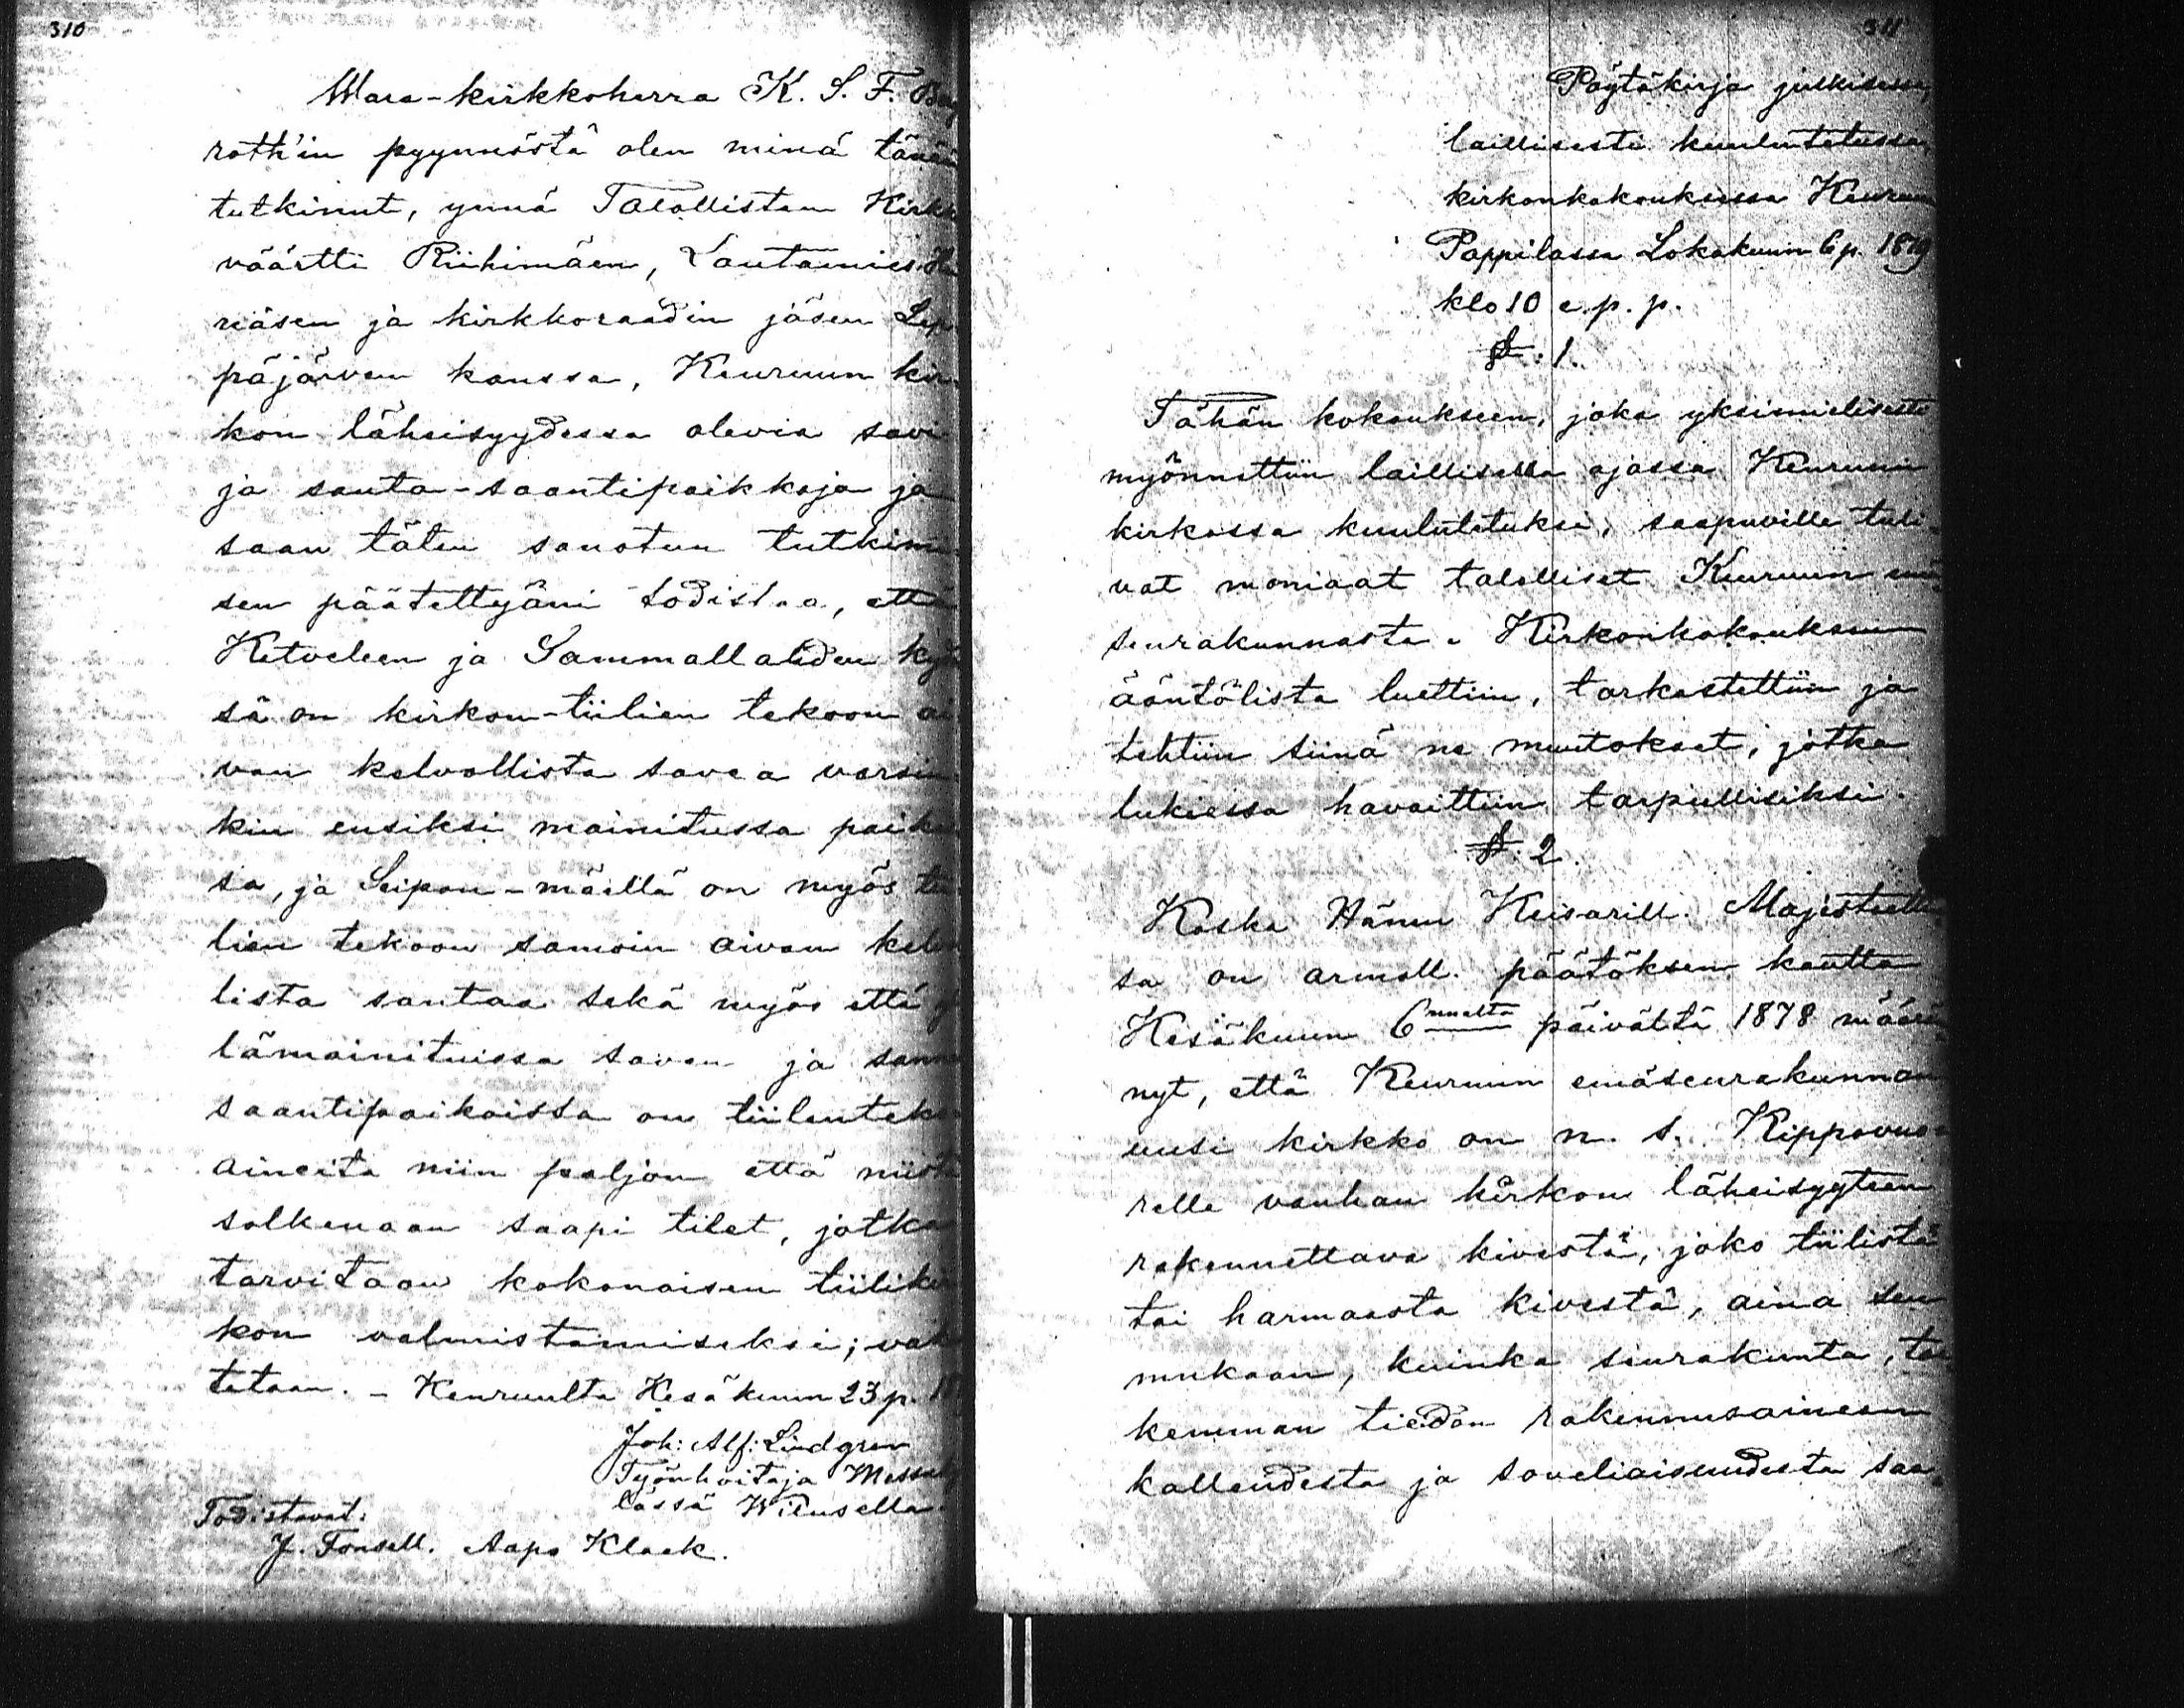 310
Wara-kirkkoherra K. S. F. Berg
roth'in pyynnöstä olen minä tänän
tutkinut, ynnä Talollisten Kirkk
väärtti Riihimäen, Lautamies
riäsen ja kirkkoraadin jäsen Lep
päjärven kanssa, Keuruun kir
kon läheisyydessä olevia savi
ja santa-saantipaikkoja ja
saan täten sanotun tutkimu
sen päätettyäni todistaa, että
Ketveleen ja Sammallahden
sä on kirkon-tiilien tekoon ai
van kelvollista savea varsin
kin ensiksi mainitussa paik
sa, ja Seipon-mäellä on myös tii
lien tekoon samoin aivan kelv
lista santaa sekä myös että y
lämainituissa saven ja sann
saantipaikoissa on tiilenteko
aineita niin paljon että niist
solkenaan saapi tilet, jotka
tarvitaan kokonaisen tiiliki
kon valmistamiseksi; vak
tetaan. - Keuruulta Kesäkuun 23 p. 1
Joh: Alf: Lindgren
Työnhoitaja Messu
lässä Wilusella
Todistavat:
J. Fonsell. Aapo Klack.
311
Pöytäkirja julkisessa,
laillisesti kuulutetussa
kirkonkokouksessa Keuruun
Pappilassa Lokakuun 6 p. 1879
klo 10 e. p. p.
§. 1.
Tähän kokoukseen, joka yksimielisesti
myönnettiin laillisella ajassa Keuruun
kirkossa kuulutetuksi, saapuville tuli-
vat moniaat talolliset Keuruun emä
seurakunnasta. Kirkonkokouksen
ääntölista luettiin, tarkastettiin ja
tehtiin siinä ne muutokset, jotka
lukiessa havaittiin tarpeellisiksi.
§. 2.
Koska Hänen Keisarill. Majesteetin
sa on armoll. päätöksen kautta
Kesäkuun 6nnelta päivältä 1878 määrän
nyt, että Keuruun emäseurakunnan
uusi kirkko on n. s. Kippavuo-
relle vanhan kirkon läheisyyteen
rakennettava kivestä, joko tiilistä
tai harmaasta kivestä, aina sen
mukaan, kuinka seurakunta, tar
kemman tiedon rakennusaineen
kalleudesta ja soveliaisuudesta saa-